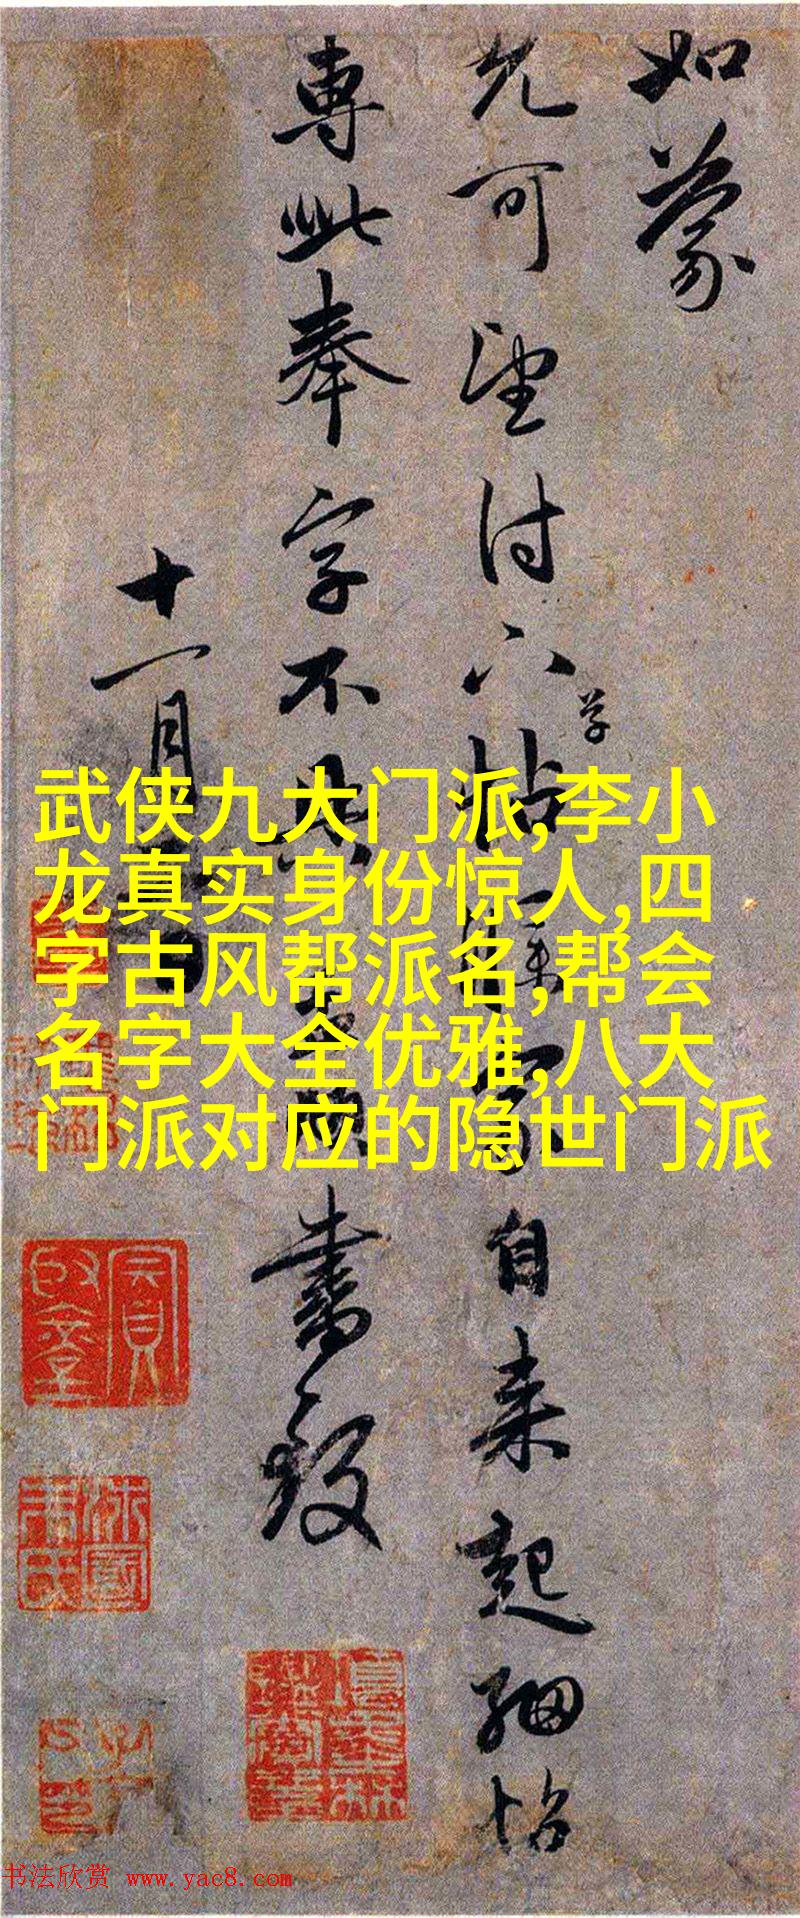 如蒙
允可望付 草 帖 家自来起 帖
專此奉字不具 書致
十一月
武侠九大门派,李小
龙真实身份惊人,四
字古风帮派名,帮会
名字大全优雅,八大
门派对应的隐世门派
书法欣赏 www.yac8.com